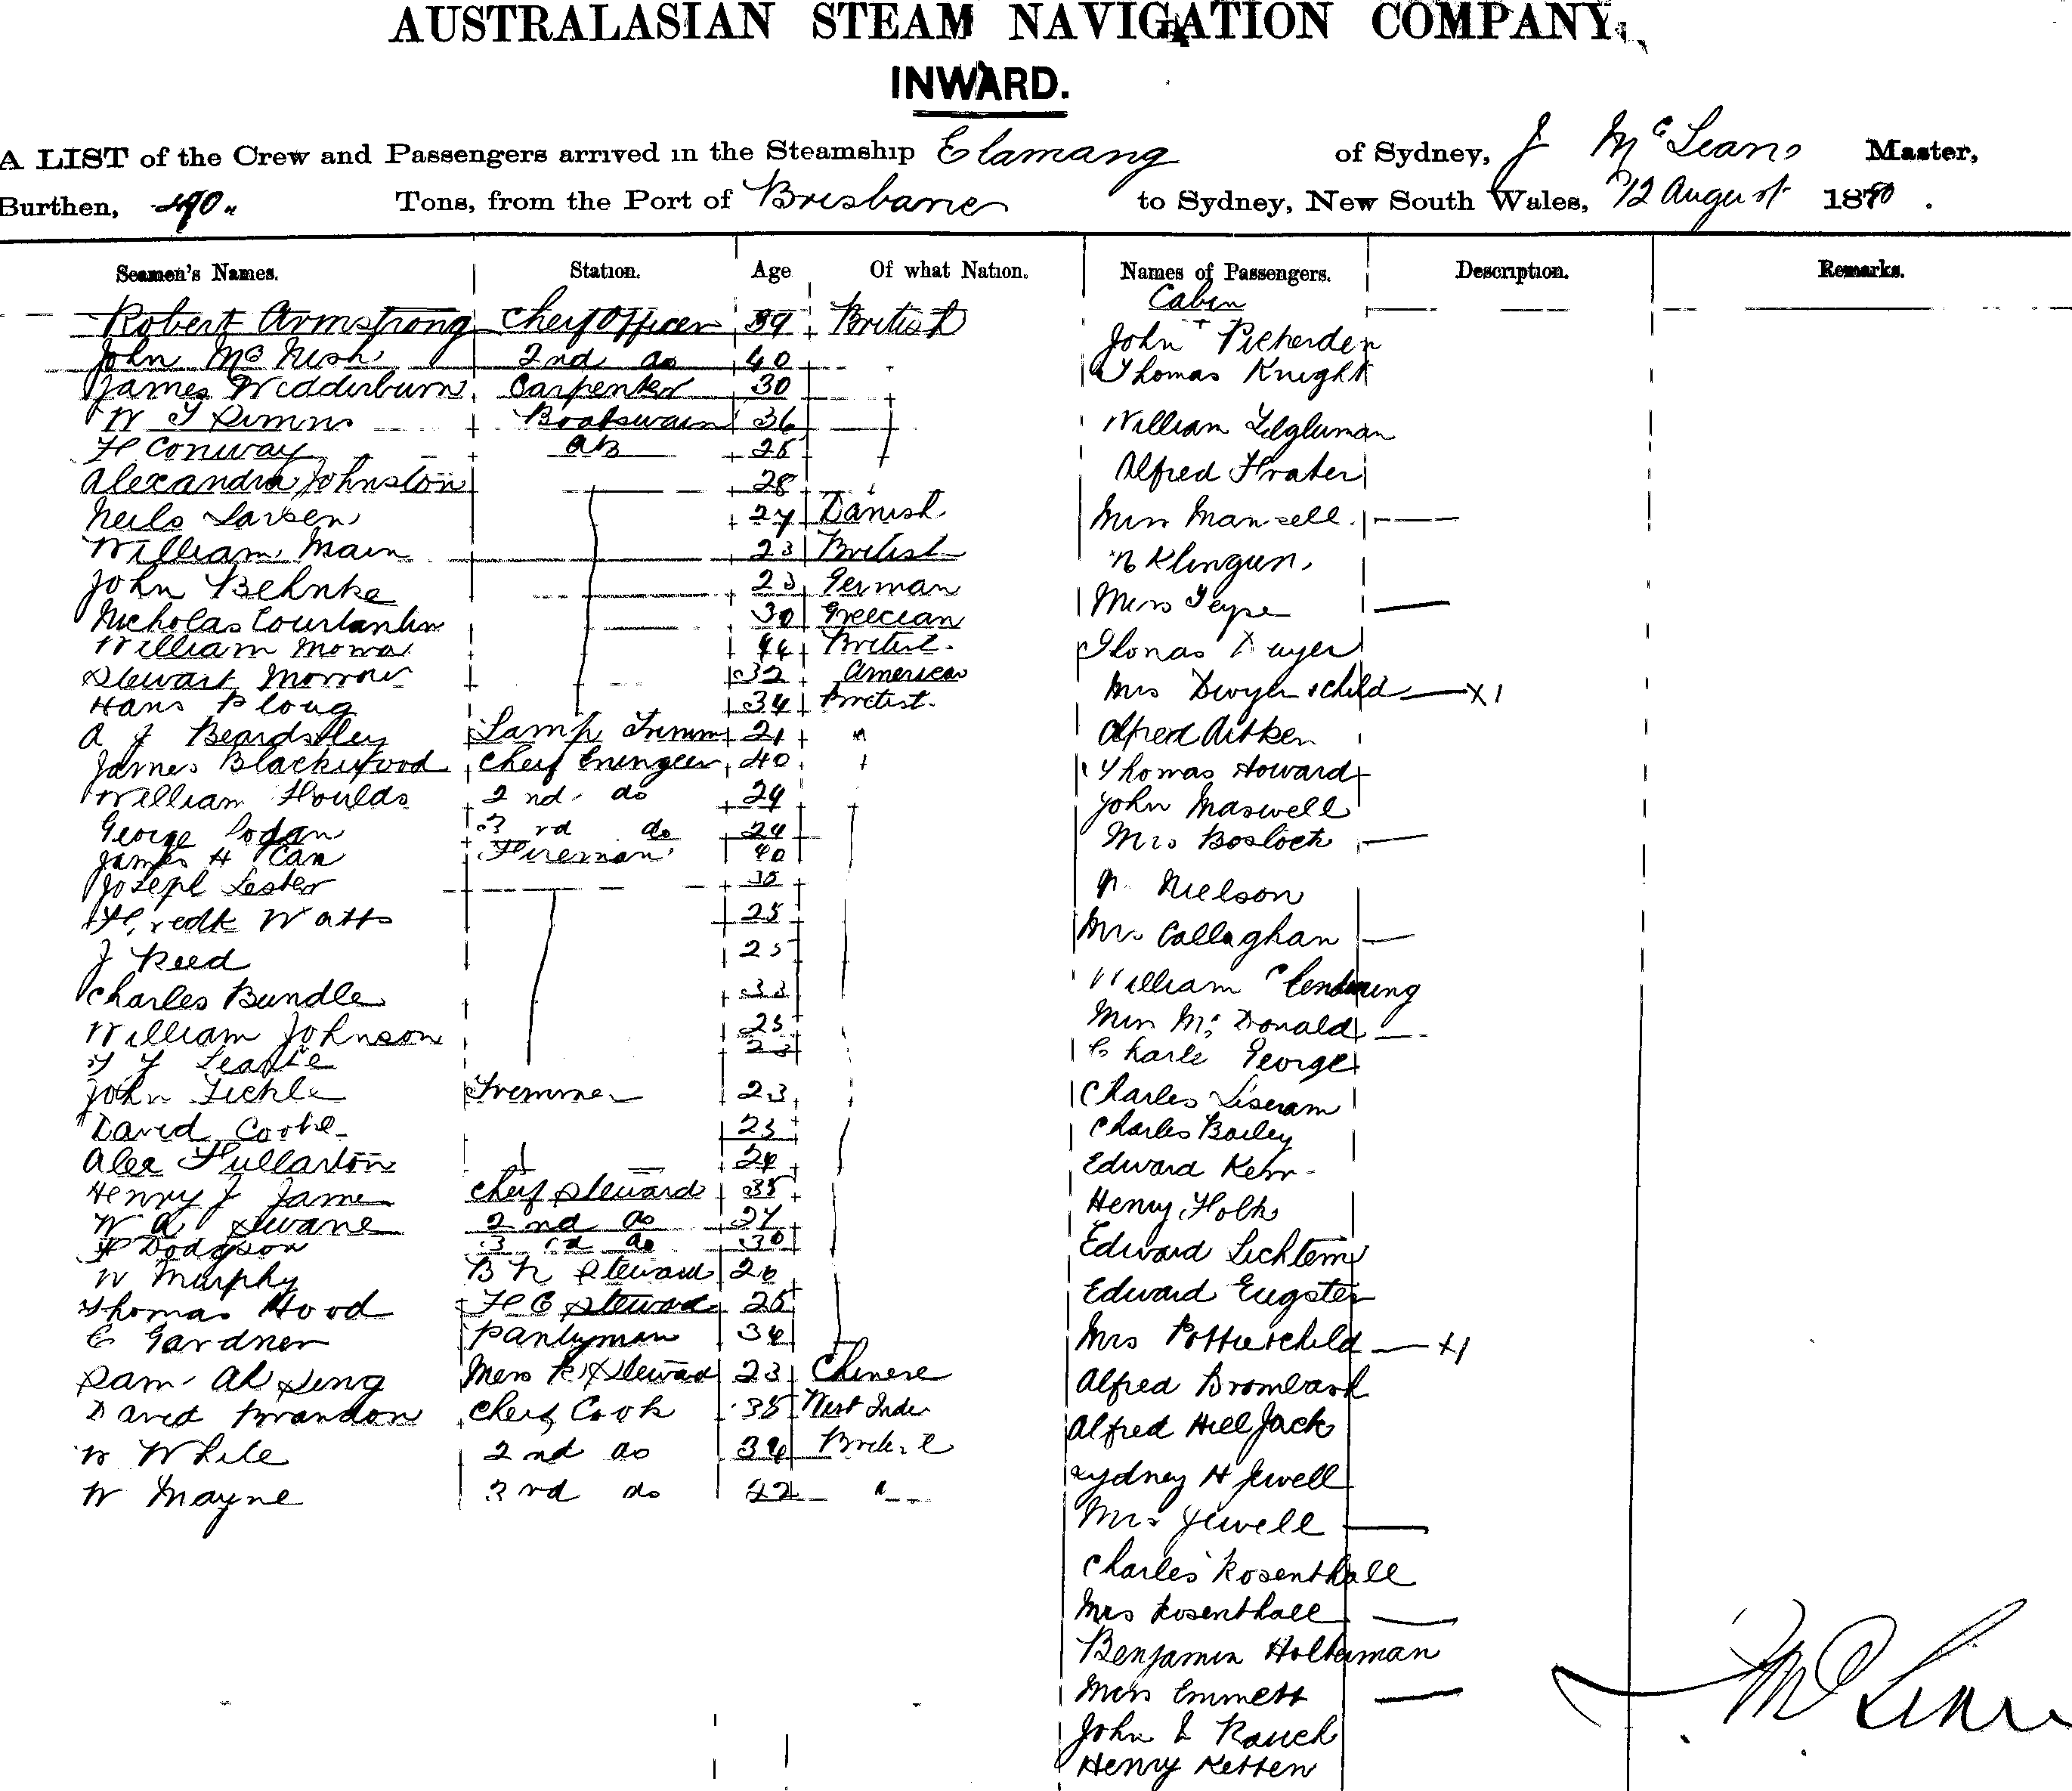 AUSTRALASIAN STEAM NAVIGATION COMPANY.
INWARD.
A LIST of the Crew and Passengers arrived in the Steamship Elamang of Sydney, J McLean Master,
Burthen, Tons, from the Port of Brisbane to Sydney, New South Wales, 12 August 18
Seamen's Names. Station. Age Of what Nation. Names of Passengers. Description. Remarks.
Cabin
Robert Armstrong Cheif Officer 39 British
John 2nd do 40
James Wedderburn Carpenter 30
W Boatswain 36
H Conway AB 25
Alexandra Johnston 28
Neils Larsen 27 Danish
William Main 23 British
John Behnke 23 German
Nicholas 30 Greecian
William 44 British
Stewart Morrow 32 American
Hans Ploug 34 British
A J Beardsley Lamp Trimm 21 "
James Blackwood Cheif 40
William Houlds 2nd do 29
George Logan 3rd do 24
James H Carr Fireman 40
Joseph Lester 35
Fredk Watts 25
J Reed 25
Charles Bundle 33
William Johnson 25
John Tickle Trimmer 23
David Cooke 23
Alex Fullarton 24
Henry J Jame Cheif Steward 35
W A Swane 2nd do 27
H Dodgson 3rd do 30
W Murphy Steward 20
Thomas Hood F C Steward 25
C Gardner Pantryman 34
Sam Ah Seng Mess R Steward 23 Chinese
David Brandon Cheif Cook 35 West Inde
W White 2nd do 34 British
W Mayne 3rd do 22 "
John Picherden
Thomas Knight
William
Alfred Frater
Miss Mansell
Miss
Mrs Dwyer & child X1
Alfred Aitken
Thomas Howard
John Maswell
Mrs Boslock
Nielson
Mrs Callaghan
William Clendining
Miss McDonald
Charle George
Charles
Charles Bailey
Edward Kerr
Henry Holh
Edward
Edward Eugster
Mrs Potter & child X1
Alfred
Alfred Hill Jack
Sydney H Jewell
Mrs Jewell
Charles Rosenthall
Mrs Rosenthall
Benjamin Holterman
Miss Emmett
John Rauch
Henry Ketten
McLean